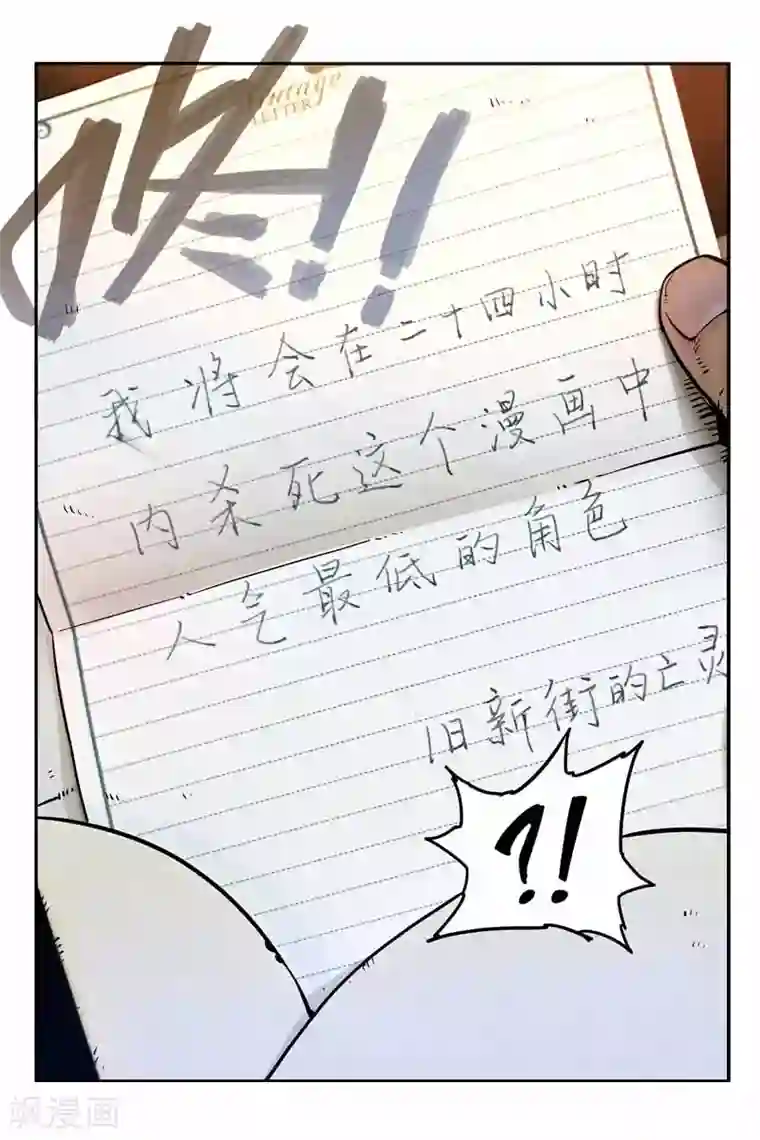 咚!!
LETTER
我将会在二十四小时
内杀死这个漫画中
人气最低的角色
旧新街的亡灵
?!
飒漫画